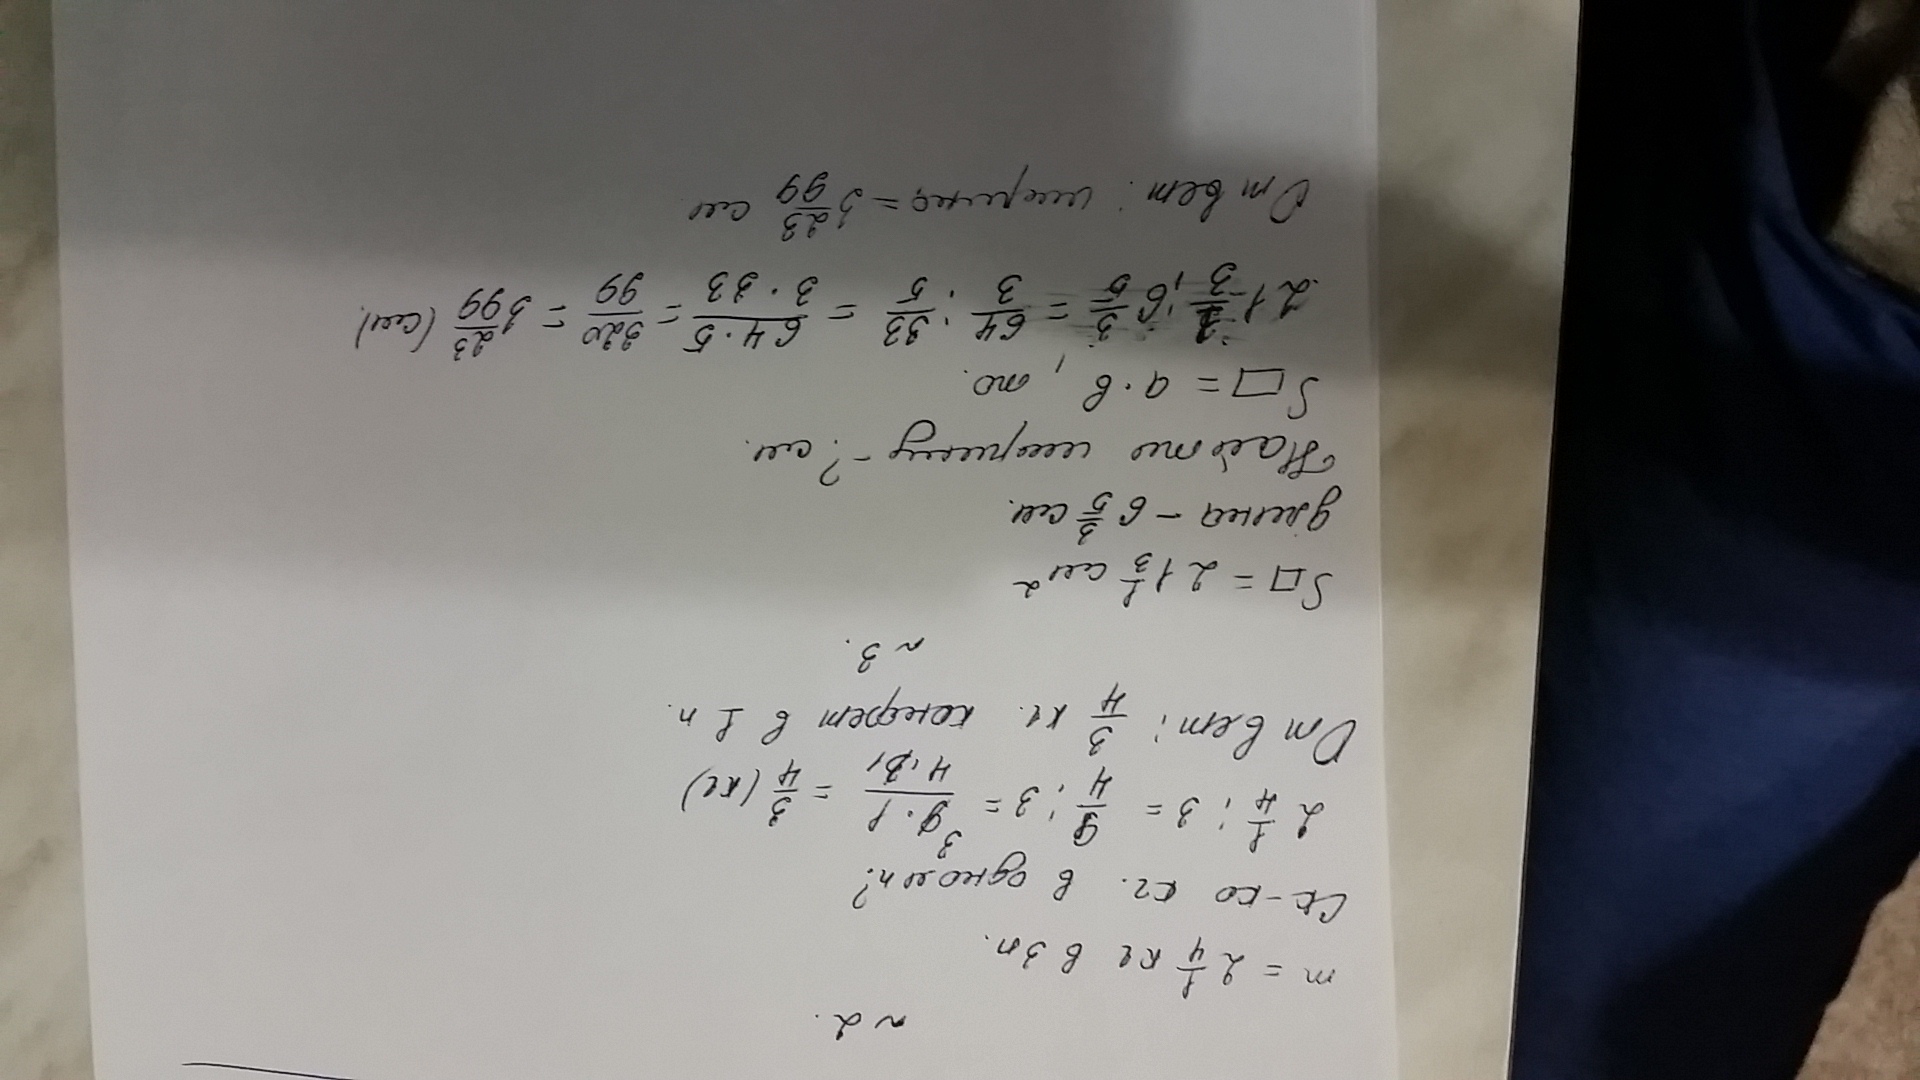 ~ 2.
m = 2 1/4 кг в 3п.
Ск-ко кг. в одном п?
2 1/4 : 3 = 9/4 : 3 = 9·1/4·3 = 3/4 (кг)
Ответ: 3/4 кг. конфет в 1 п.
~ 3.
S□ = 21 1/3 см²
длина - 6 3/5 см.
Найти ширину - ? см.
S□ = a·b, то.
21 1/3 : 6 3/5 = 64/3 : 33/5 = 64·5/3·33 = 320/99 = 3 23/99 (см).
Ответ: ширина = 3 23/99 см